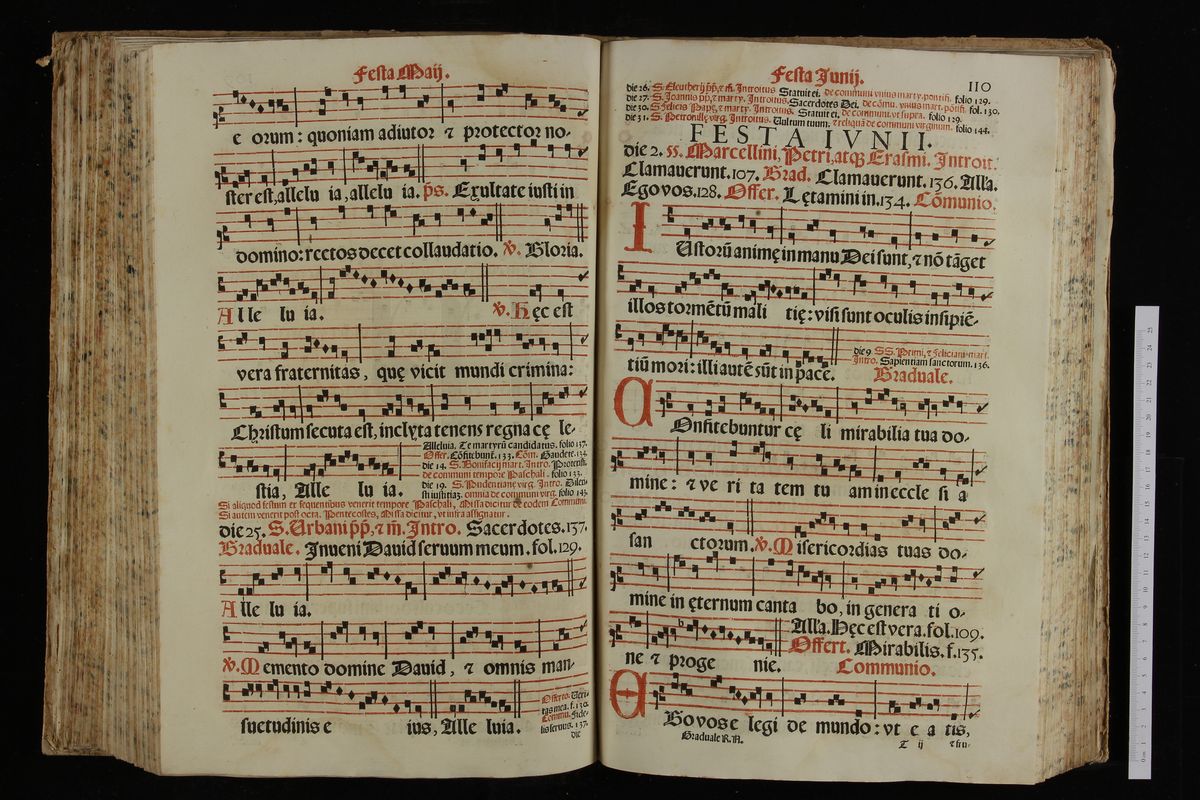 Festa Maij.
e orum: quoniam adiutor ⁊ protector no-
ster est, allelu ia, allelu ia. p̄s. Exultate iusti in
domino: rectos decet collaudatio. ℣. Gloria.
Alle lu ia. ℣. Hęc est
vera fraternitas, quę vicit mundi crimina:
Christum secuta est, inclyta tenens regna cę le-
Alleluia. Te martyrū candidatus. folio 137.
Offer. Cōfitebunt. 133. Cōm. Gaudete. 134.
die 14. S. Bonifacij mart. Intro. Protexisti.
de communi tempore Paschali. folio 133.
die 19. S. Pudentianę virg. Intro. Dilexi-
sti iustitiaz. omnia de communi virg. folio 143.
stia, Alle lu ia.
Si aliquod festum ex sequentibus venerit tempore Paschali, Missa dicitur de eodem Communi.
Si autem venerit post octa. Pentecostes, Missa dicitur, vt infra assignatur.
die 25. S. Urbani pp̄, ⁊ m̄. Intro. Sacerdotes. 137.
Graduale. Inueni Dauid seruum meum. fol. 129.
Alle lu ia.
℣. Memento domine Dauid, ⁊ omnis man-
Offerto. Veri-
tas mea. f. 130.
Commu. Fide-
lis seruus. 137.
suetudinis e ius, Alle luia.
die
Festa Junij.
110
die 26. S. Eleutherij pp̄, ⁊ m̄. Introitus Statuit ei. de communi vnius marty. pontifi. folio 129.
die 27. S. Joannis pp̄, ⁊ marty. Introitus. Sacerdotes Dei. de cōmu. vnius mart. pōtifi. fol. 130.
die 30. S. Felicis Papę, ⁊ marty. Introitus. Statuit ei. de communi. vt supra. folio 129.
die 31. S. Petronillę virg. Introitus. Vultum tuum. ⁊ reliqua de communi virginum. folio 144.
FESTA IVNII.
die 2. SS. Marcellini, Petri, atq; Erasmi. Introit.
Clamauerunt. 107. Grad. Clamauerunt. 136. Alla.
Ego vos. 128. Offer. Lętamini in. 134. Cōmunio.
IUstorū animę in manu Dei sunt, ⁊ nō tāget
illos tormētū mali tię: visi sunt oculis insipiē-
die 9 SS. Primi, ⁊ Feliciani mart.
Intro. Sapientiam sanctorum. 136.
tiū mori: illi autē sūt in pace. Graduale.
COnfitebuntur cę li mirabilia tua do-
mine: ⁊ ve ri ta tem tu am in eccle si a
san ctorum. ℣. Misericordias tuas do-
mine in ęternum canta bo, in genera ti o-
Alla. Hęc est vera. fol. 109.
Offert. Mirabilis. f. 135.
ne ⁊ proge nie. Communio.
EGo vos e legi de mundo: vt e a tis,
Graduale R. N. T ij ⁊ fru-